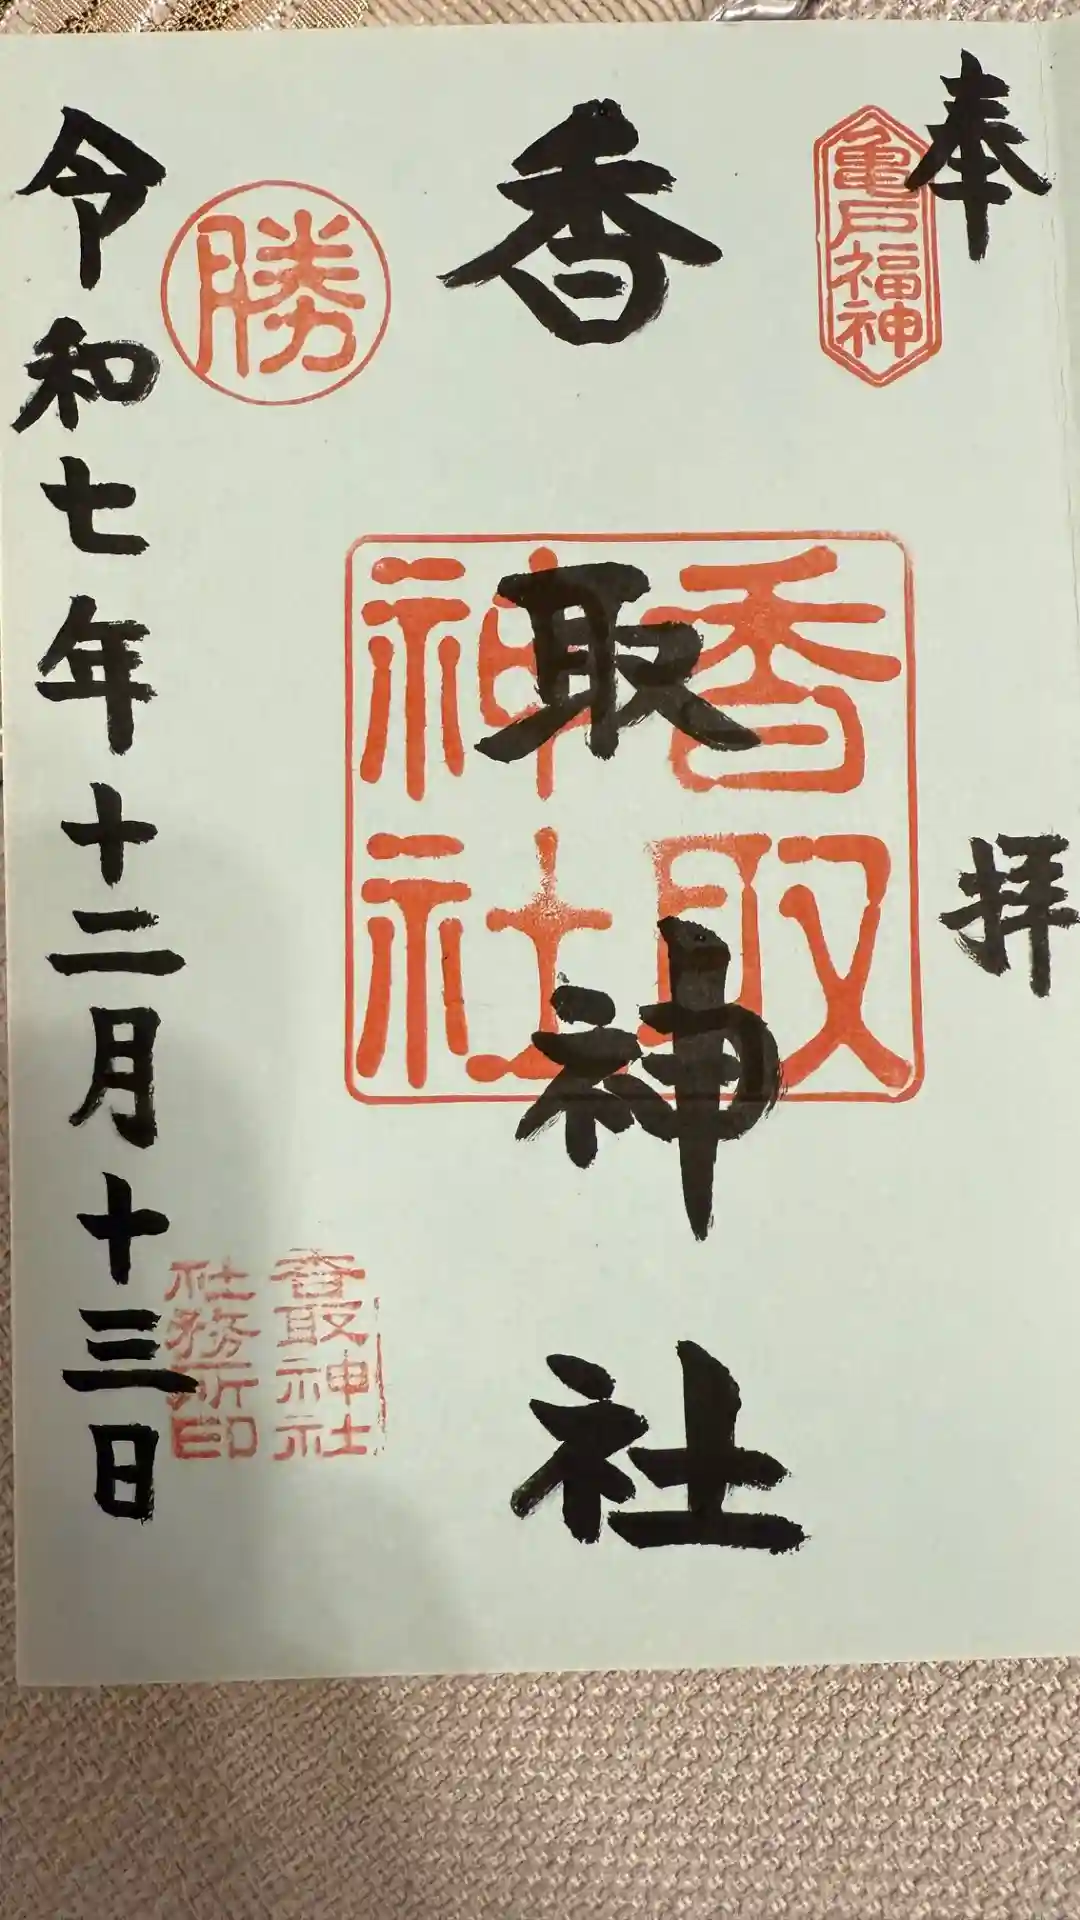 奉拝
亀戸福神
香取神社
香取
神社
勝
香取神社
社務所印
令和七年十二月十三日